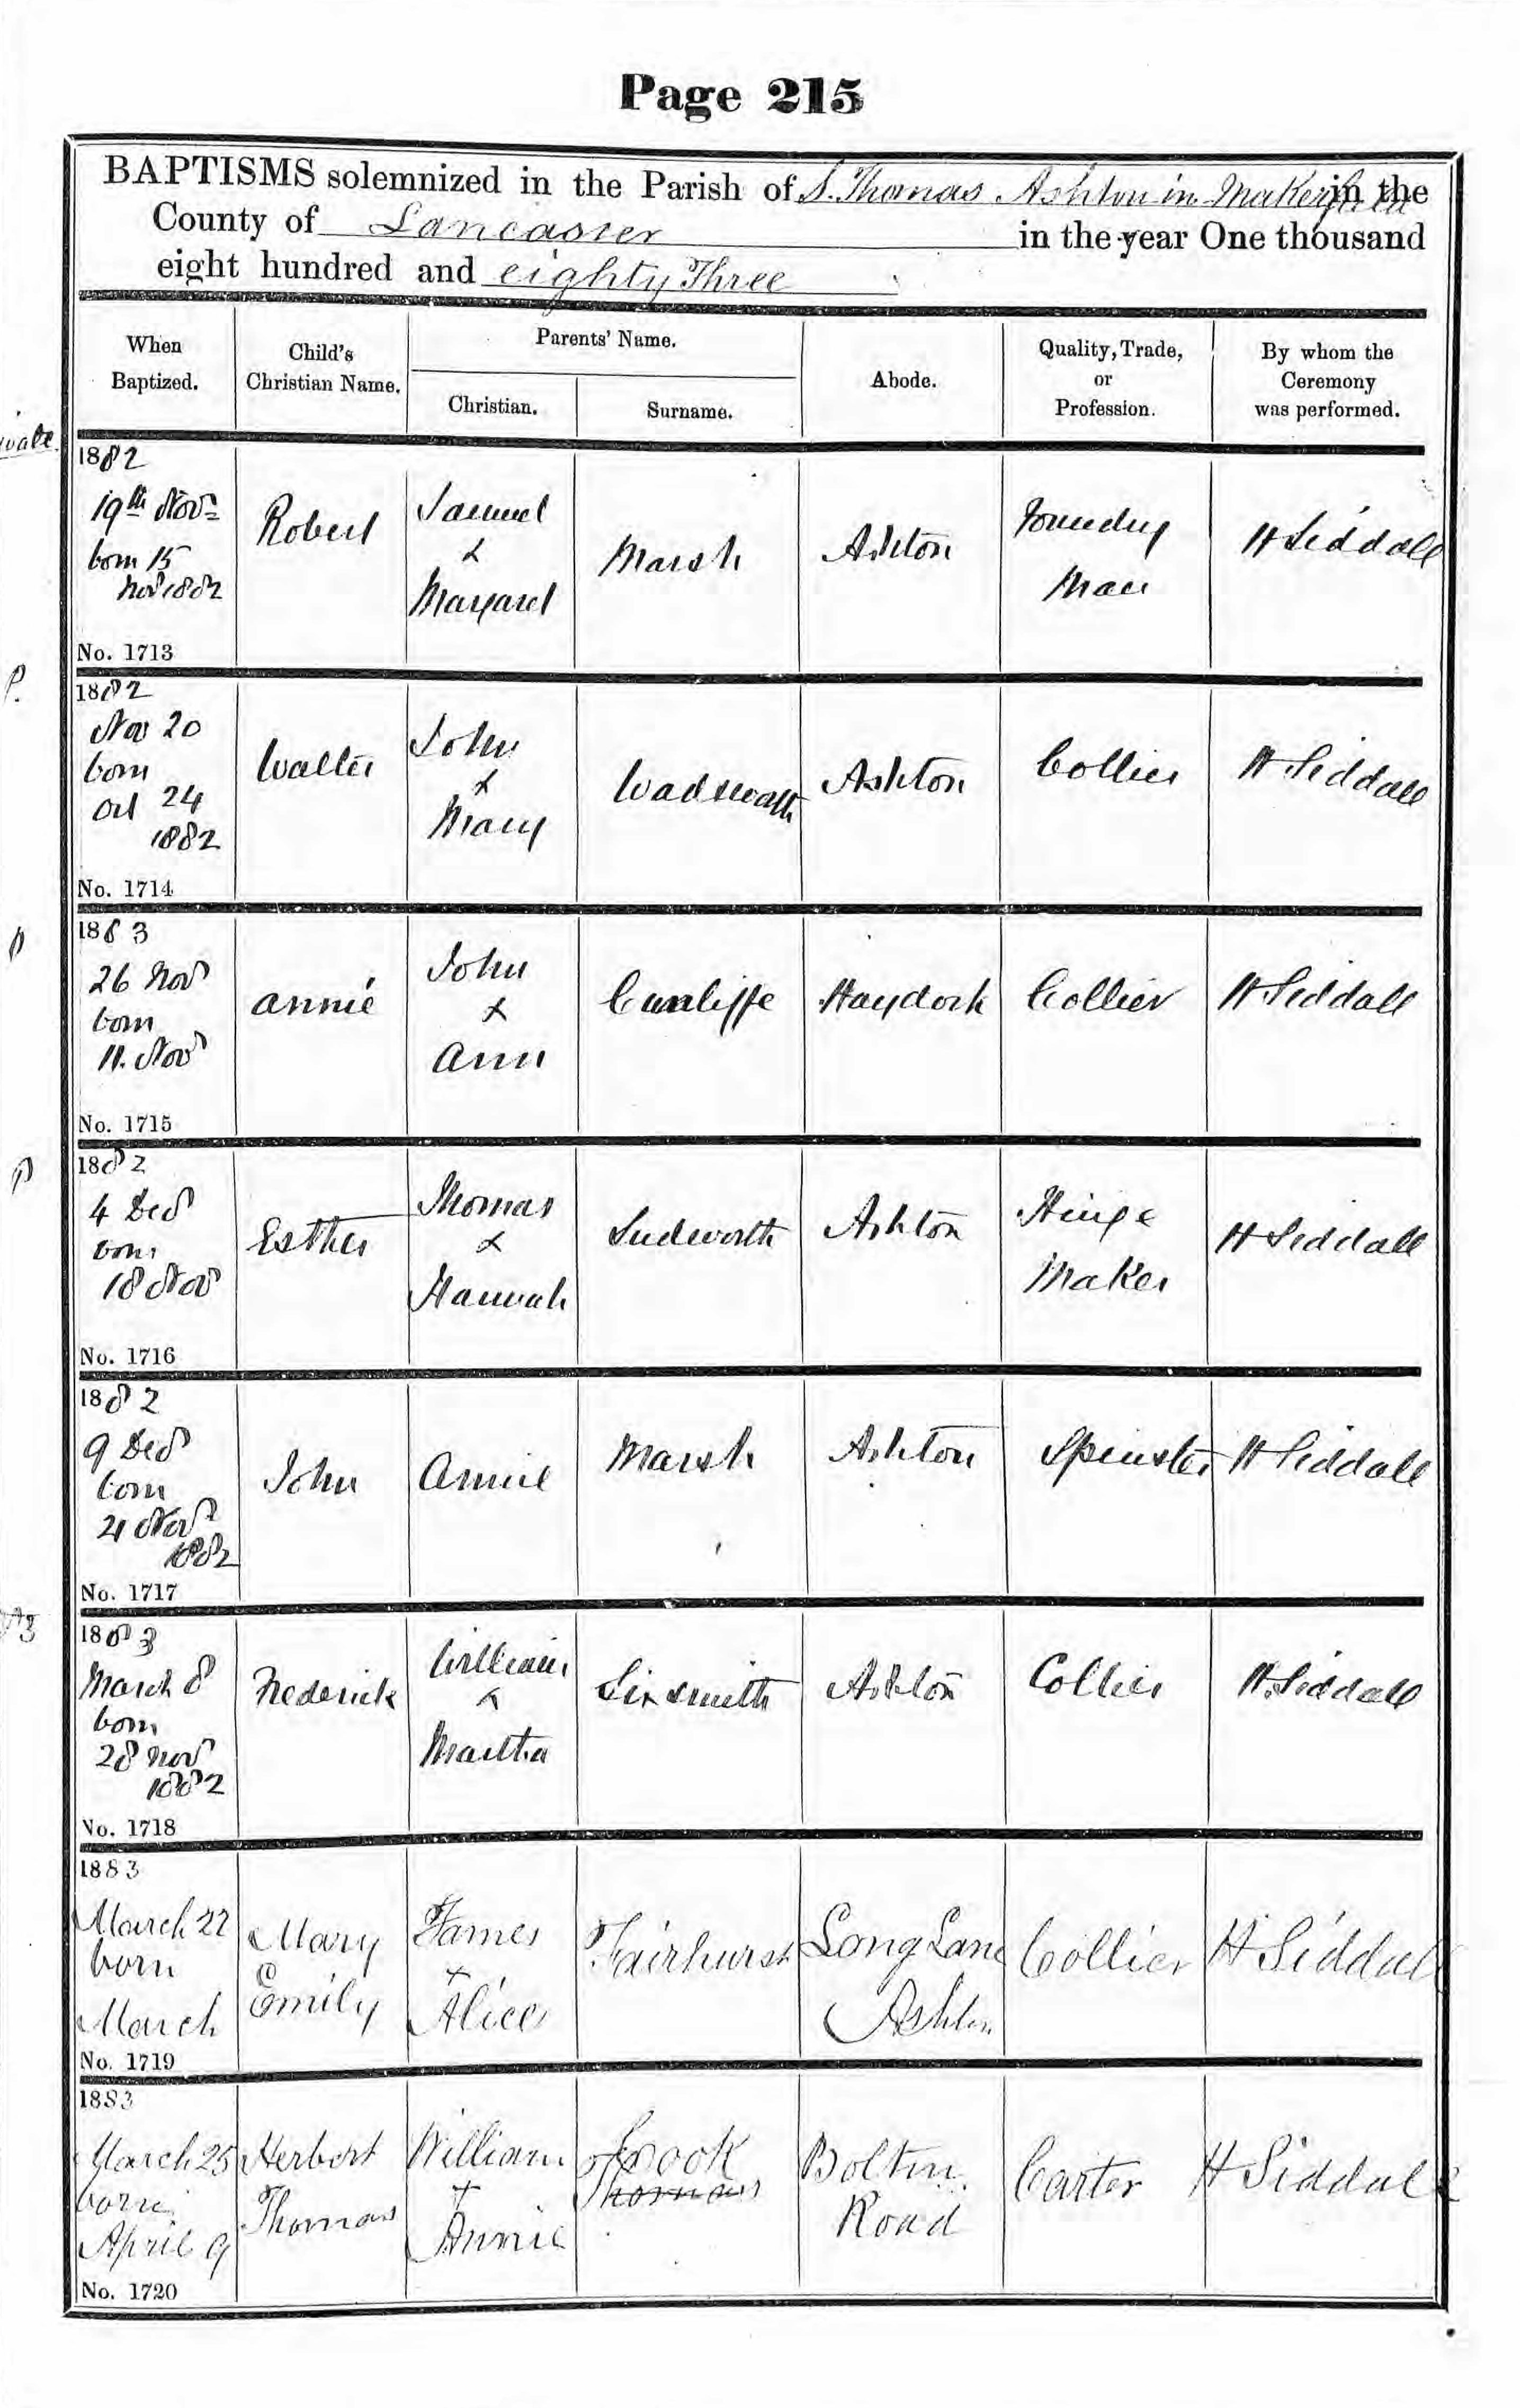 Page 215
BAPTISMS solemnized in the Parish of S. Thomas Ashton in Makerfield in the
County of Lancaster in the year One thousand
eight hundred and eighty Three
When
Baptized.
Child's
Christian Name.
Parents' Name.
Christian.
Surname.
Abode.
Quality, Trade,
or
Profession.
By whom the
Ceremony
was performed.
1882
19th Novr
born 15
Nov 1882
No. 1713
Robert
Samuel
&
Margaret
Marsh
Ashton
Foundry
Man
H Siddall
P.
1882
Nov 20
born
Oct 24
1882
No. 1714
Walter
John
&
Mary
Wadsworth
Ashton
Collier
H Siddall
P
1883
26 Nov
born
11. Nov
No. 1715
Annie
John
&
Ann
Cunliffe
Haydock
Collier
H Siddall
P
1882
4 Dec
born
18 Nov
No. 1716
Esther
Thomas
&
Hannah
Sudworth
Ashton
Hinge
Maker
H Siddall
1882
9 Dec
born
21 Nov
1882
No. 1717
John
Annie
Marsh
Ashton
Spinster
H Siddall
1883
March 8
born
28 Nov
1882
No. 1718
Frederick
William
&
Martha
Sixsmith
Ashton
Collier
H. Siddall
1883
March 22
born
March
No. 1719
Mary
Emily
James
+
Alice
Fairhurst
Long Lane
Ashton
Collier
H Siddall
1883
March 25
born
April 9
No. 1720
Herbert
Thomas
William
+
Annie
Crook
Thomas
Bolton
Road
Carter
H Siddall